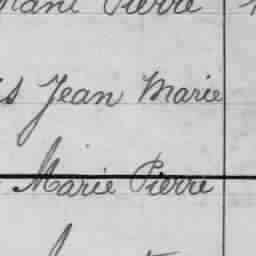 Marie Pierre
Jean Marie
Marie Pierre